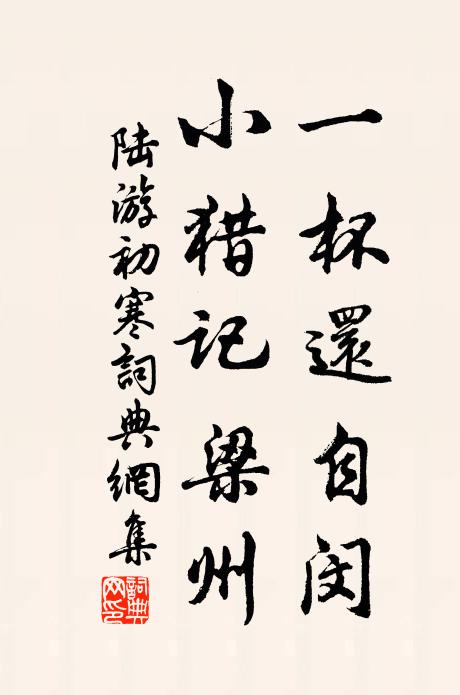 一杯還自闵
小猎记梁州
陆游初寒詞典網集
詞典网印